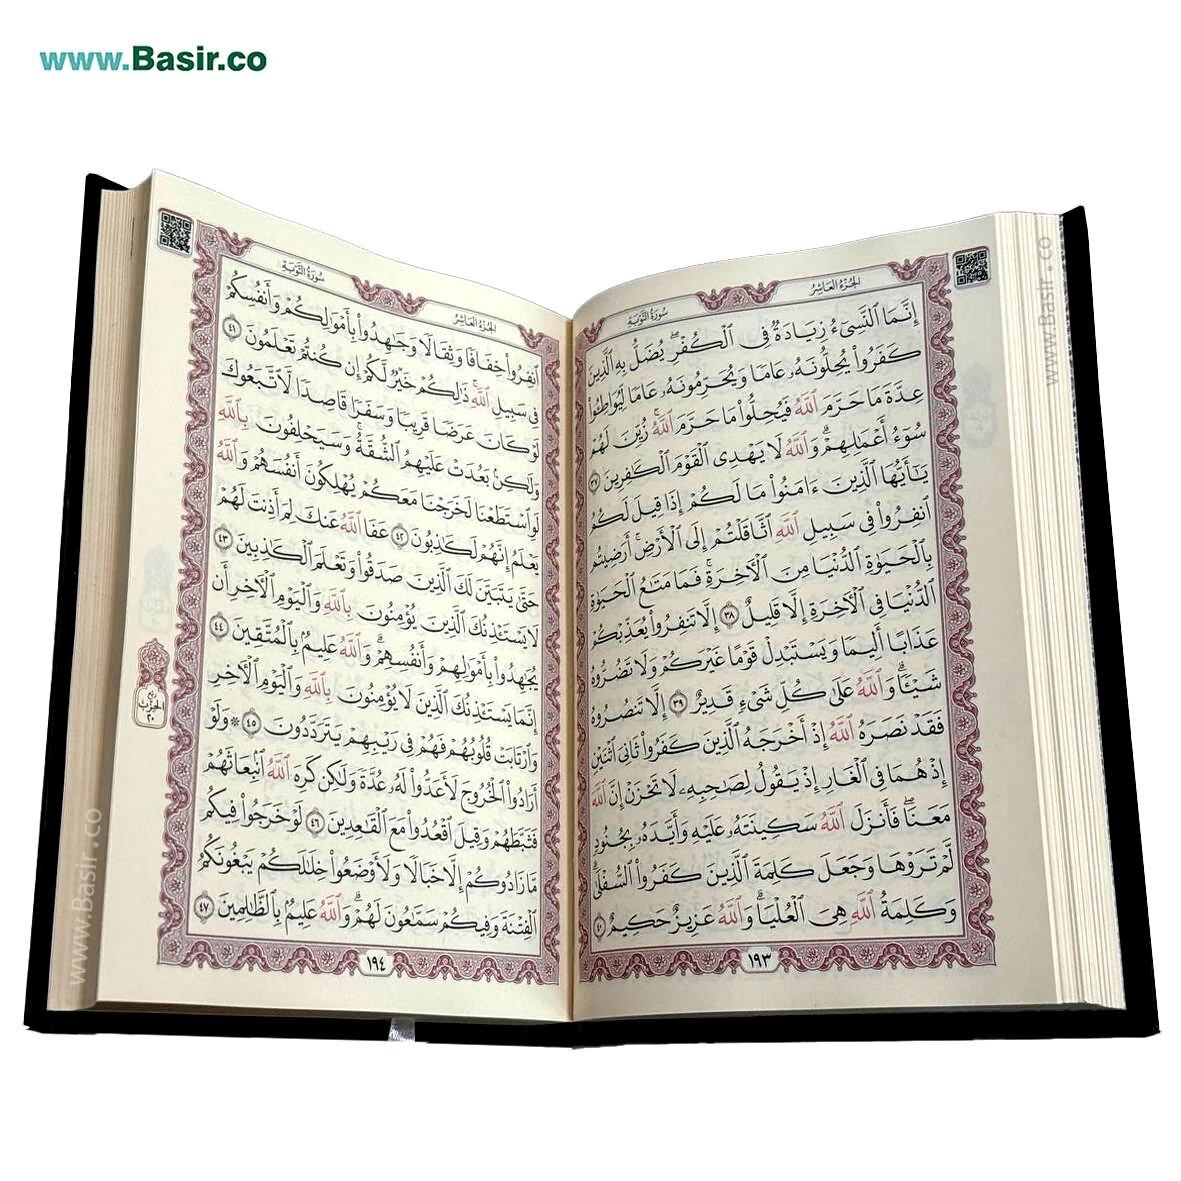 www.Basir.co
الجزء العاشر
سورة التوبة
إِنَّمَا ٱلنَّسِىٓءُ زِيَادَةٌ فِى ٱلْكُفْرِ ۖ يُضَلُّ بِهِ ٱلَّذِينَ
كَفَرُوا۟ يُحِلُّونَهُۥ عَامًا وَيُحَرِّمُونَهُۥ عَامًا لِّيُوَاطِـُٔوا۟
عِدَّةَ مَا حَرَّمَ ٱللَّهُ فَيُحِلُّوا۟ مَا حَرَّمَ ٱللَّهُ ۚ زُيِّنَ لَهُمْ
سُوٓءُ أَعْمَٰلِهِمْ ۗ وَٱللَّهُ لَا يَهْدِى ٱلْقَوْمَ ٱلْكَٰفِرِينَ ٣٧
يَٰٓأَيُّهَا ٱلَّذِينَ ءَامَنُوا۟ مَا لَكُمْ إِذَا قِيلَ لَكُمُ
ٱنفِرُوا۟ فِى سَبِيلِ ٱللَّهِ ٱثَّاقَلْتُمْ إِلَى ٱلْأَرْضِ ۚ أَرَضِيتُم
بِٱلْحَيَوٰةِ ٱلدُّنْيَا مِنَ ٱلْءَاخِرَةِ ۚ فَمَا مَتَٰعُ ٱلْحَيَوٰةِ
ٱلدُّنْيَا فِى ٱلْءَاخِرَةِ إِلَّا قَلِيلٌ ٣٨ إِلَّا تَنفِرُوا۟ يُعَذِّبْكُمْ
عَذَابًا أَلِيمًا وَيَسْتَبْدِلْ قَوْمًا غَيْرَكُمْ وَلَا تَضُرُّوهُ
شَيْـًٔا ۗ وَٱللَّهُ عَلَىٰ كُلِّ شَىْءٍ قَدِيرٌ ٣٩ إِلَّا تَنصُرُوهُ
فَقَدْ نَصَرَهُ ٱللَّهُ إِذْ أَخْرَجَهُ ٱلَّذِينَ كَفَرُوا۟ ثَانِىَ ٱثْنَيْنِ
إِذْ هُمَا فِى ٱلْغَارِ إِذْ يَقُولُ لِصَٰحِبِهِۦ لَا تَحْزَنْ إِنَّ ٱللَّهَ
مَعَنَا ۖ فَأَنزَلَ ٱللَّهُ سَكِينَتَهُۥ عَلَيْهِ وَأَيَّدَهُۥ بِجُنُودٍ
لَّمْ تَرَوْهَا وَجَعَلَ كَلِمَةَ ٱلَّذِينَ كَفَرُوا۟ ٱلسُّفْلَىٰ ۗ
وَكَلِمَةُ ٱللَّهِ هِىَ ٱلْعُلْيَا ۗ وَٱللَّهُ عَزِيزٌ حَكِيمٌ ٤٠
١٩٣
www.Basir.co
الجزء العاشر
سورة التوبة
ٱنفِرُوا۟ خِفَافًا وَثِقَالًا وَجَٰهِدُوا۟ بِأَمْوَٰلِكُمْ وَأَنفُسِكُمْ
فِى سَبِيلِ ٱللَّهِ ۚ ذَٰلِكُمْ خَيْرٌ لَّكُمْ إِن كُنتُمْ تَعْلَمُونَ ٤١
لَوْ كَانَ عَرَضًا قَرِيبًا وَسَفَرًا قَاصِدًا لَّٱتَّبَعُوكَ
وَلَٰكِنۢ بَعُدَتْ عَلَيْهِمُ ٱلشُّقَّةُ ۚ وَسَيَحْلِفُونَ بِٱللَّهِ
لَوِ ٱسْتَطَعْنَا لَخَرَجْنَا مَعَكُمْ يُهْلِكُونَ أَنفُسَهُمْ وَٱللَّهُ
يَعْلَمُ إِنَّهُمْ لَكَٰذِبُونَ ٤٢ عَفَا ٱللَّهُ عَنكَ لِمَ أَذِنتَ لَهُمْ
حَتَّىٰ يَتَبَيَّنَ لَكَ ٱلَّذِينَ صَدَقُوا۟ وَتَعْلَمَ ٱلْكَٰذِبِينَ ٤٣
لَا يَسْتَـْٔذِنُكَ ٱلَّذِينَ يُؤْمِنُونَ بِٱللَّهِ وَٱلْيَوْمِ ٱلْءَاخِرِ أَن
يُجَٰهِدُوا۟ بِأَمْوَٰلِهِمْ وَأَنفُسِهِمْ ۗ وَٱللَّهُ عَلِيمٌۢ بِٱلْمُتَّقِينَ ٤٤
إِنَّمَا يَسْتَـْٔذِنُكَ ٱلَّذِينَ لَا يُؤْمِنُونَ بِٱللَّهِ وَٱلْيَوْمِ ٱلْءَاخِرِ
وَٱرْتَابَتْ قُلُوبُهُمْ فَهُمْ فِى رَيْبِهِمْ يَتَرَدَّدُونَ ٤٥ ۞ وَلَوْ
أَرَادُوا۟ ٱلْخُرُوجَ لَأَعَدُّوا۟ لَهُۥ عُدَّةً وَلَٰكِن كَرِهَ ٱللَّهُ ٱنۢبِعَاثَهُمْ
فَثَبَّطَهُمْ وَقِيلَ ٱقْعُدُوا۟ مَعَ ٱلْقَٰعِدِينَ ٤٦ لَوْ خَرَجُوا۟ فِيكُم
مَّا زَادُوكُمْ إِلَّا خَبَالًا وَلَأَوْضَعُوا۟ خِلَٰلَكُمْ يَبْغُونَكُمُ
ٱلْفِتْنَةَ وَفِيكُمْ سَمَّٰعُونَ لَهُمْ ۗ وَٱللَّهُ عَلِيمٌۢ بِٱلظَّٰلِمِينَ ٤٧
١٩٤
ربع
الحزب
٢٠
www.Basir.co